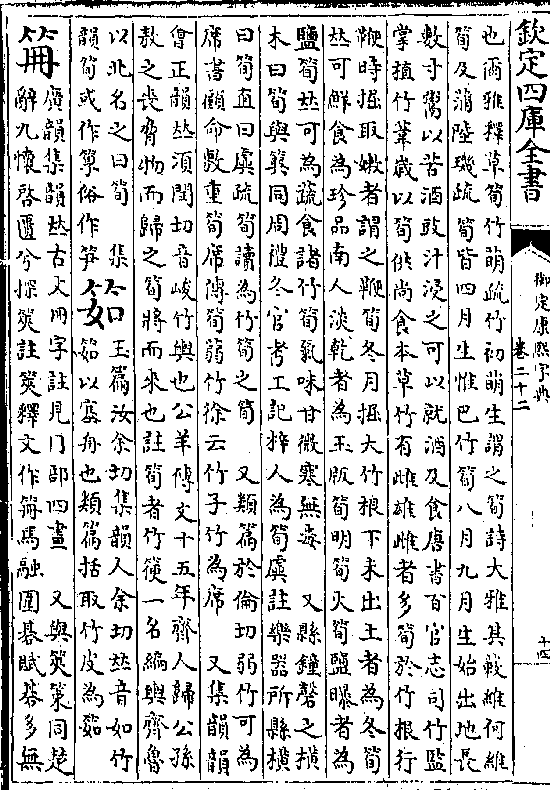 欽定四庫全書
御定康熙字典
卷二十二
十四
也爾雅釋草筍竹萌疏竹初萌生謂之筍詩大雅其蔌維何維
筍及蒲陸璣疏筍皆四月生惟巴竹筍八月九月生始出地長
數寸鬻以苦酒豉汁浸之可以就酒及食唐書百官志司竹監
掌植竹葦歲以筍供尚食本草竹有雌雄雌者多筍於竹根行
鞭時掘取嫩者謂之鞭筍冬月掘大竹根下未出土者為冬筍
𠀤可鮮食為珍品南人淡乾者為玉版筍明筍火筍鹽曝者為
鹽筍𠀤可為蔬食諸竹筍氣味甘微寒無毒 又縣鐘磬之橫
木曰筍與簨同周禮冬官考工記梓人為筍虡註樂器所縣橫
曰筍直曰虡疏筍讀為竹筍之筍 又類篇於倫切弱竹可為
席書顧命敷重筍席傳筍蒻竹徐云竹子竹為席 又集韻韻
會正韻𠀤須閏切音峻竹輿也公羊傳文十五年齊人歸公孫
敖之喪脅物而歸之筍將而來也註筍者竹箯一名編輿齊魯
以北名之曰筍 集
韻筍或作筸俗作笋
筎
玉篇汝余切集韻人余切𠀤音如竹
筎以塞舟也類篇括取竹皮為筎
笧
廣韻集韻𠀤古文冊字註見冂部四畫 又與筴策同楚
辭九懷啓匱兮探筴註筴釋文作笧馬融圍碁賦碁多無